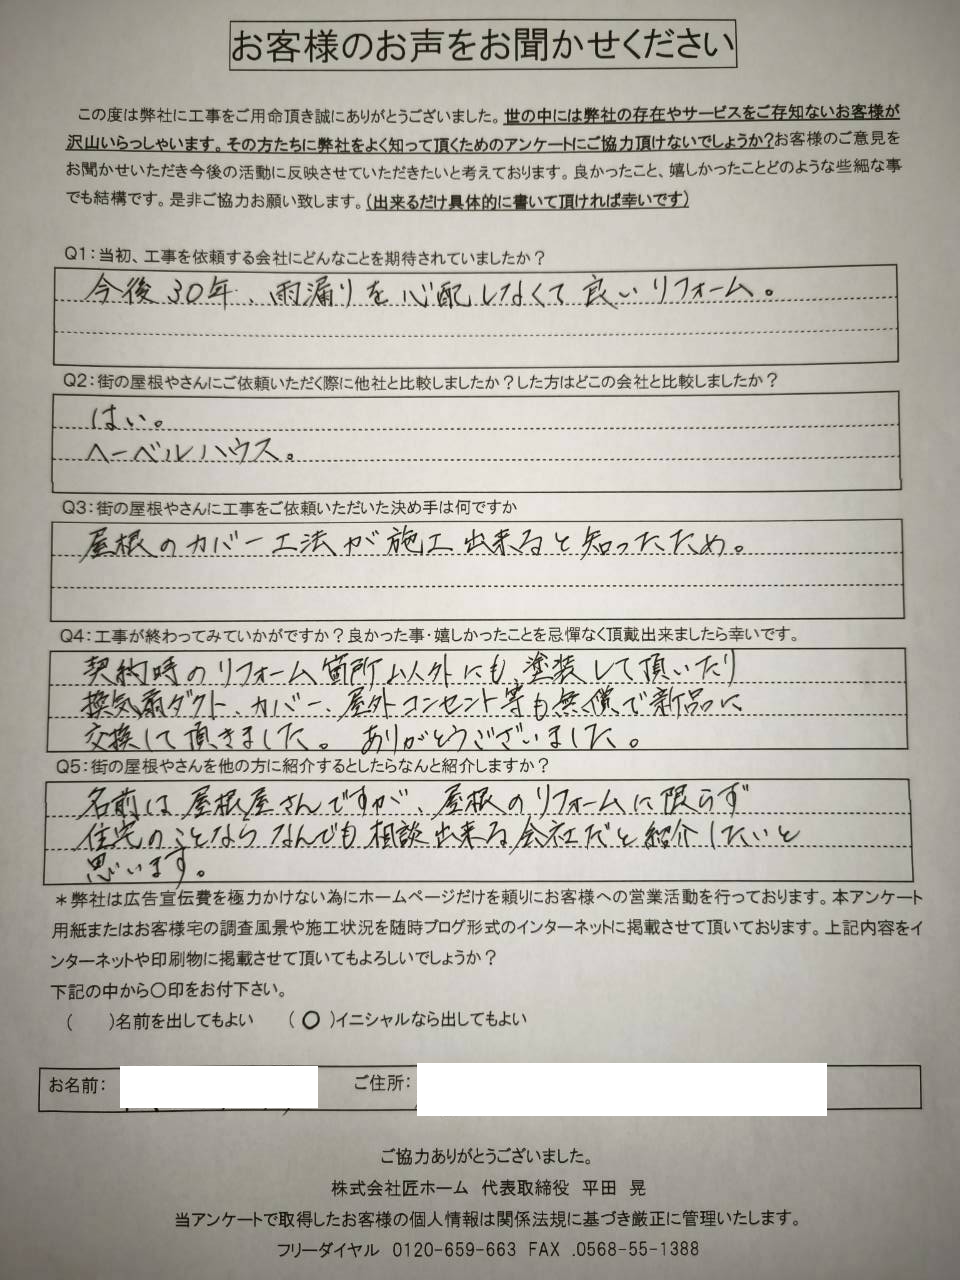 お客様のお声をお聞かせください
この度は弊社に工事をご用命頂き誠にありがとうございました。世の中には弊社の存在やサービスをご存知ないお客様が
沢山いらっしゃいます。その方たちに弊社をよく知って頂くためのアンケートにご協力頂けないでしょうか?お客様のご意見を
お聞かせいただき今後の活動に反映させていただきたいと考えております。良かったこと、嬉しかったことどのような些細な事
でも結構です。是非ご協力お願い致します。(出来るだけ具体的に書いて頂ければ幸いです)
Q1:当初、工事を依頼する会社にどんなことを期待されていましたか?
今後30年、雨漏りを心配しなくて良いリフォーム。
Q2:街の屋根やさんにご依頼いただく際に他社と比較しましたか?した方はどこの会社と比較しましたか?
はい。
ヘーベルハウス。
Q3:街の屋根やさんに工事をご依頼いただいた決め手は何ですか
屋根のカバー工法が施工出来ると知ったため。
Q4:工事が終わってみていかがですか?良かった事・嬉しかったことを忌憚なく頂戴出来ましたら幸いです。
契約時のリフォーム箇所以外にも、塗装して頂いたり
換気扇ダクト、カバー、屋外コンセント等も無償で新品に
交換して頂きました。ありがとうございました。
Q5:街の屋根やさんを他の方に紹介するとしたらなんと紹介しますか?
名前は屋根屋さんですが、屋根のリフォームに限らず
住宅のことならなんでも相談出来る会社だと紹介したいと
思います。
*弊社は広告宣伝費を極力かけない為にホームページだけを頼りにお客様への営業活動を行っております。本アンケート
用紙またはお客様宅の調査風景や施工状況を随時ブログ形式のインターネットに掲載させて頂いております。上記内容をイ
ンターネットや印刷物に掲載させて頂いてもよろしいでしょうか?
下記の中から〇印をお付下さい。
( )名前を出してもよい (〇)イニシャルなら出してもよい
お名前: ご住所:
ご協力ありがとうございました。
株式会社匠ホーム 代表取締役 平田 晃
当アンケートで取得したお客様の個人情報は関係法規に基づき厳正に管理いたします。
フリーダイヤル 0120-659-663 FAX .0568-55-1388